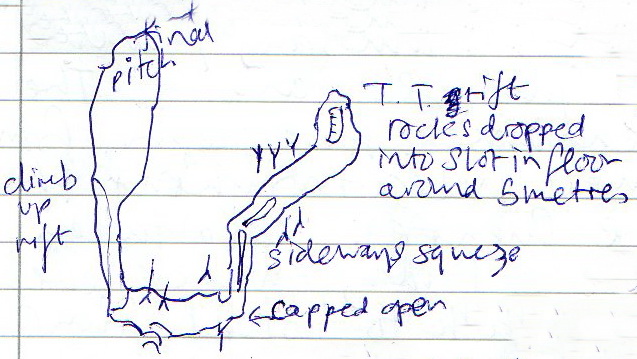 final
pitch
T. T. rift
rocks dropped
into slot in floor
around 5 metres
climb
up
rift
sideways squeze
capped open